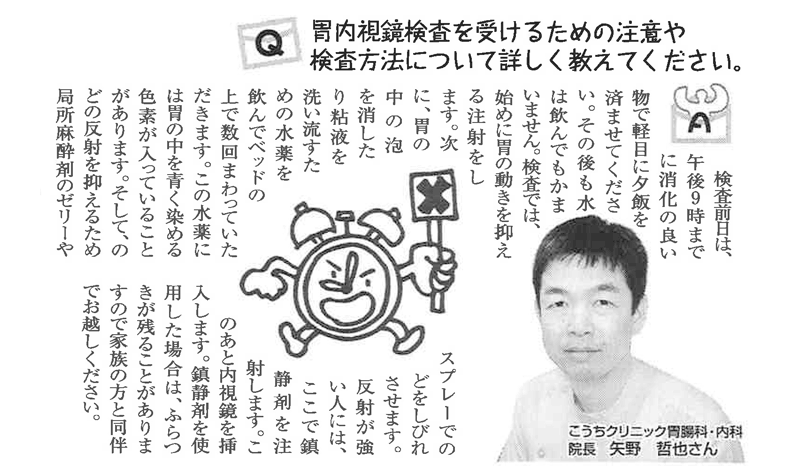 Q
胃内視鏡検査を受けるための注意や
検査方法について詳しく教えてください。
A
検査前日は、
午後9時まで
に消化の良い
物で軽目に夕飯を
済ませてくださ
い。その後も水
は飲んでもかま
いません。検査では、
始めに胃の動きを抑え
る注射をし
ます。次
に、胃の
中の泡
を消した
り粘液を
洗い流すた
めの水薬を
飲んでベッドの
上で数回まわっていた
だきます。この水薬に
は胃の中を青く染める
色素が入っていること
があります。そして、の
どの反射を抑えるため
局所麻酔剤のゼリーや
スプレーでの
どをしびれ
させます。
反射が強
い人には、
ここで鎮
静剤を注
射します。こ
のあと内視鏡を挿
入します。鎮静剤を使
用した場合は、ふらつ
きが残ることがありま
すので家族の方と同伴
でお越しください。
こうちクリニック胃腸科・内科
院長 矢野 哲也さん